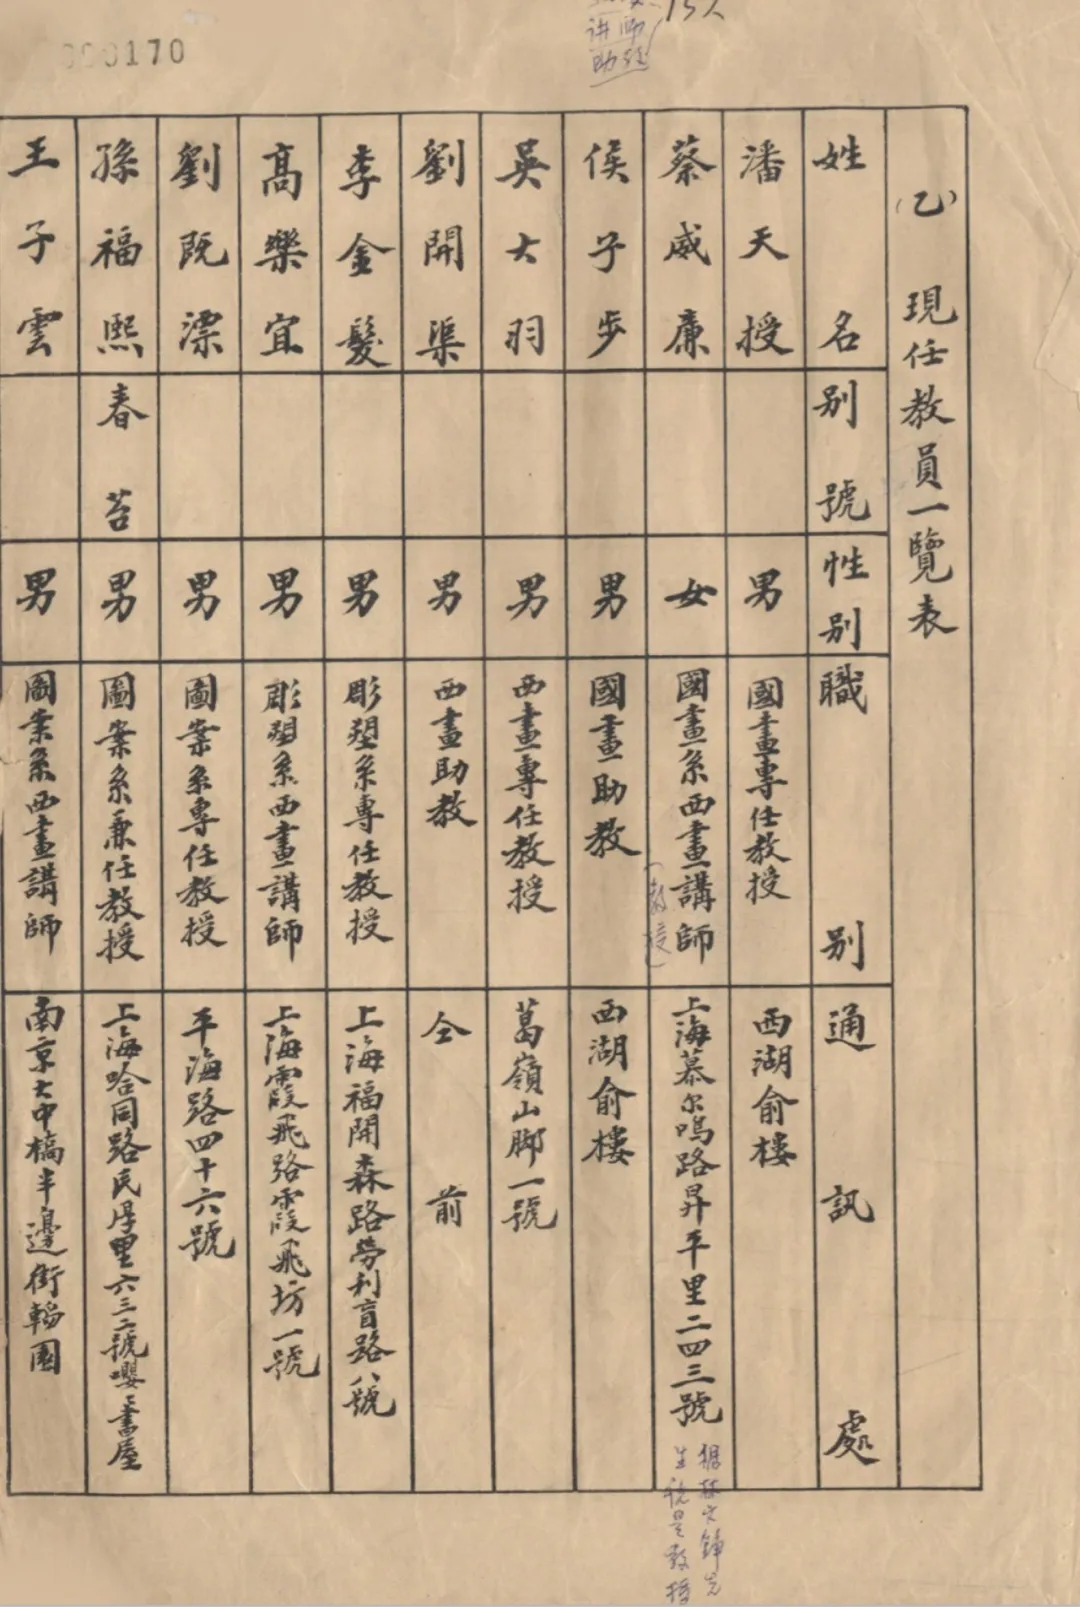 170
講師
助教
15人
(乙) 現任教員一覽表
姓名 別號 性別 職別 通訊處
潘天授 男 國畫專任教授 西湖俞樓
蔡威廉 女 國畫系西畫講師 上海慕尔鳴路昇平里二四三號
(教授)
据林文錚先
生說是教授
侯子步 男 國畫助教 西湖俞樓
吳大羽 男 西畫專任教授 葛嶺山脚一號
劉開渠 男 西畫助教 仝前
李金髮 男 彫塑系專任教授 上海福開森路勞利育路八號
高樂宜 男 彫塑系西畫講師 上海霞飛路霞飛坊一號
劉既漂 男 圖案系專任教授 平海路四十六號
孫福熙 春苔 男 圖案系兼任教授 上海哈同路民厚里六三二號嚶嚶書屋
王子雲 男 圖案系西畫講師 南京大中橋半邊街韜園